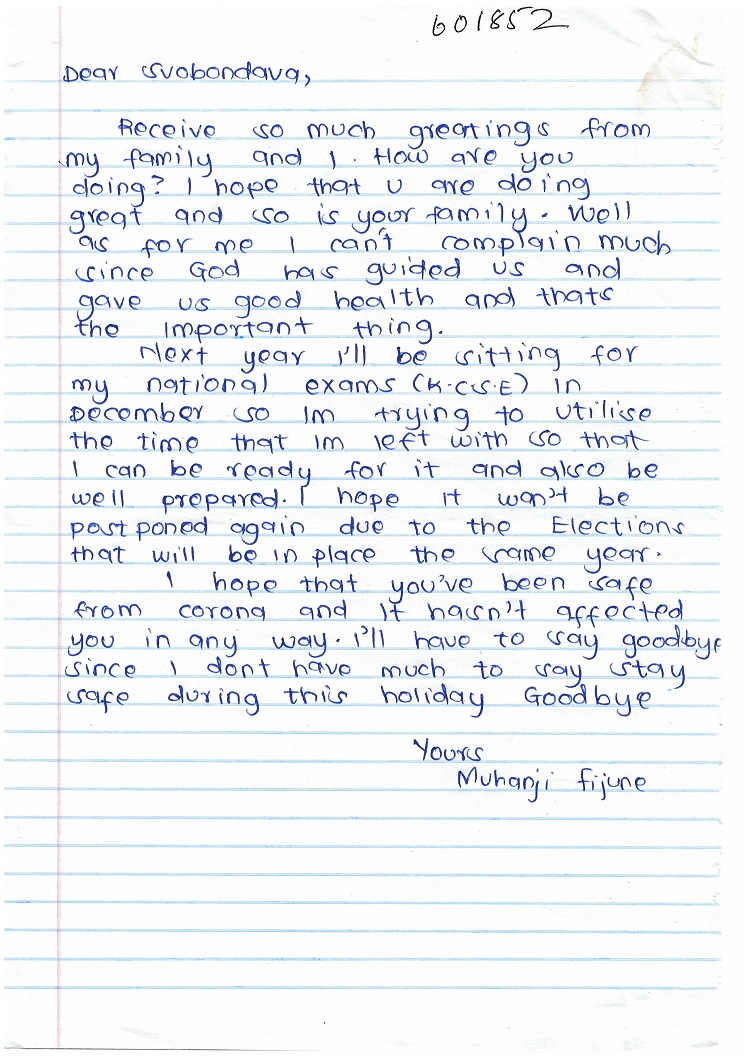 601852
Dear Svobondava,
Receive so much greetings from
my family and I. How are you
doing? I hope that u are doing
great and so is your family. Well
as for me I can't complain much
since God has guided us and
gave us good health and thats
the important thing.
Next year I'll be sitting for
my national exams (K.C.S.E) in
December so Im trying to utilise
the time that Im left with so that
I can be ready for it and also be
well prepared. I hope it won't be
post poned again due to the Elections
that will be in place the same year.
I hope that you've been safe
from corona and it hasn't affected
you in any way. I'll have to say goodbye
since I dont have much to say stay
safe during this holiday Goodbye
Yours
Muhanji fijune